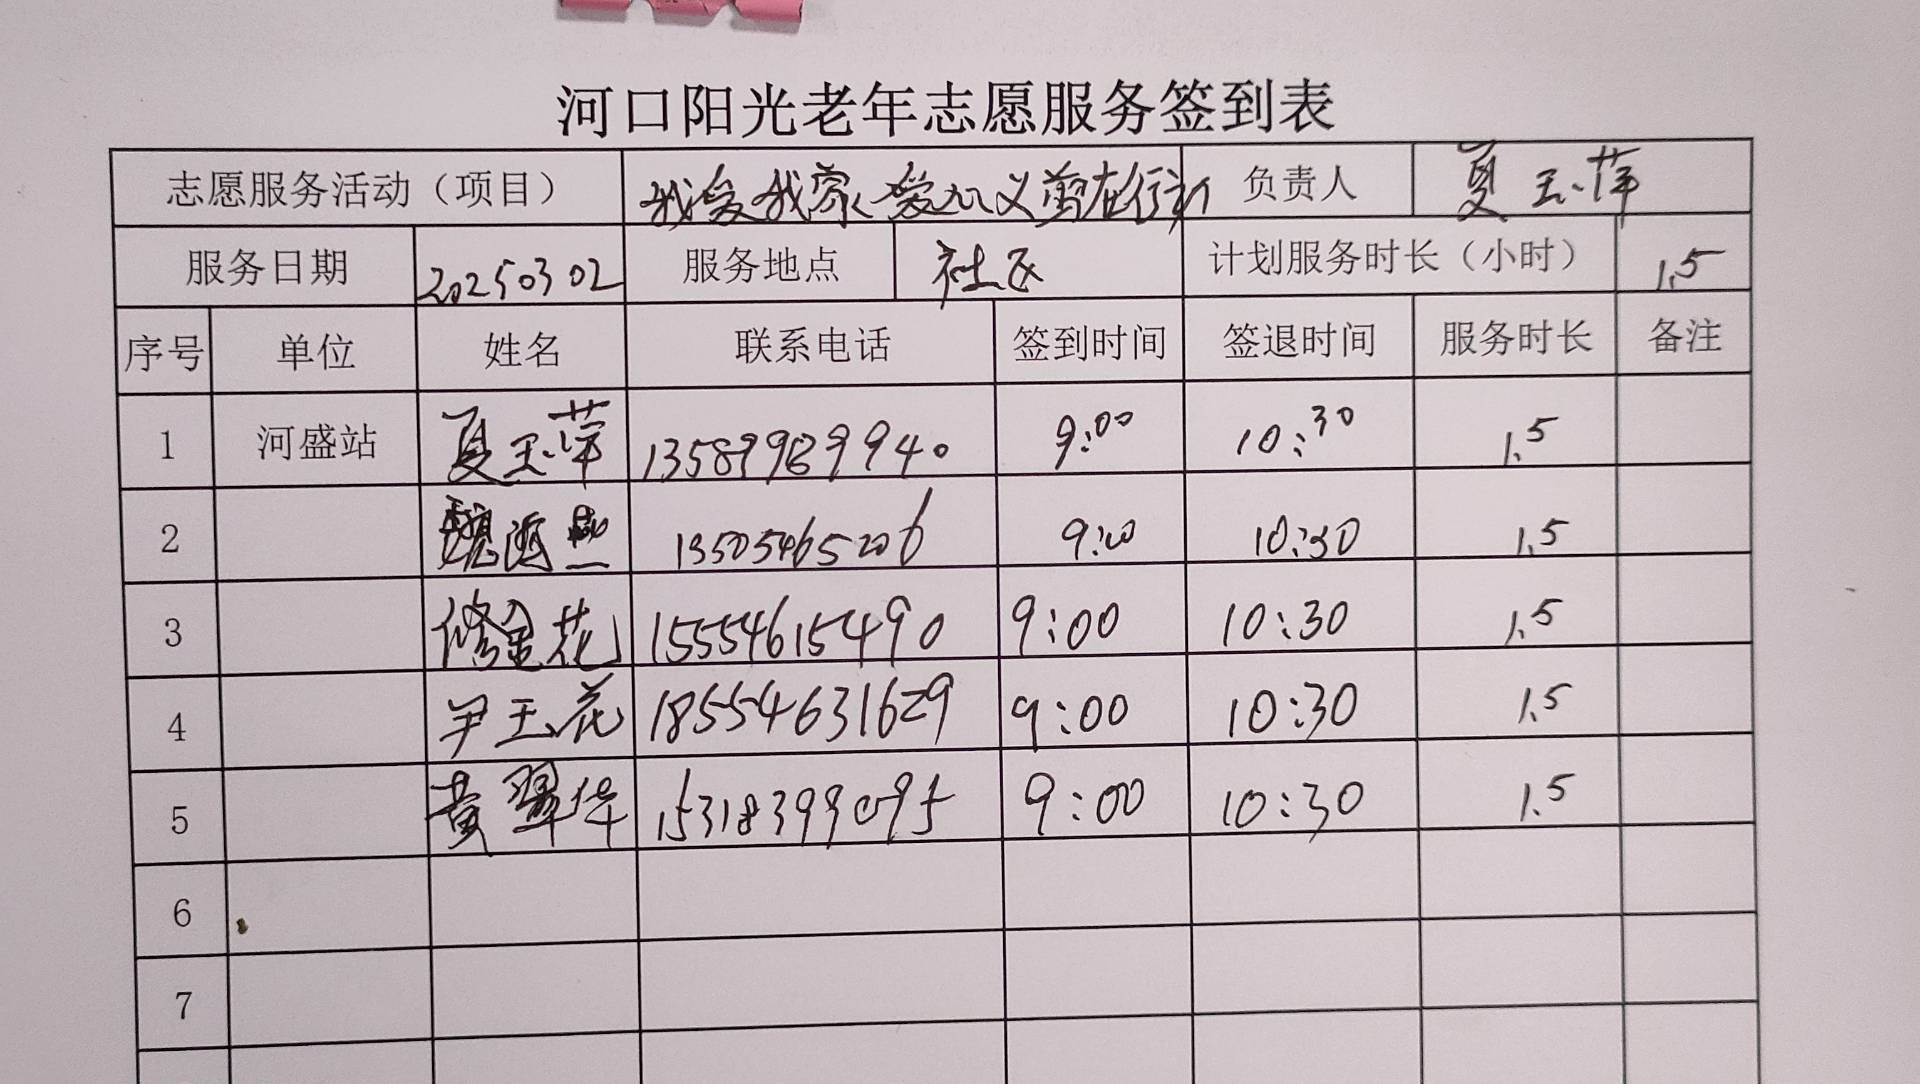 河口阳光老年志愿服务签到表
志愿服务活动（项目） 我爱我家 爱心义剪在行动 负责人 夏玉萍
服务日期 20250302 服务地点 社区 计划服务时长（小时） 1.5
序号 单位 姓名 联系电话 签到时间 签退时间 服务时长 备注
1 河盛站 夏玉萍 13589989940 9:00 10:30 1.5
2 魏海燕 13505465206 9:00 10:30 1.5
3 修金花 15554615490 9:00 10:30 1.5
4 尹玉花 18554631629 9:00 10:30 1.5
5 黄翠华 15318399095 9:00 10:30 1.5
6
7